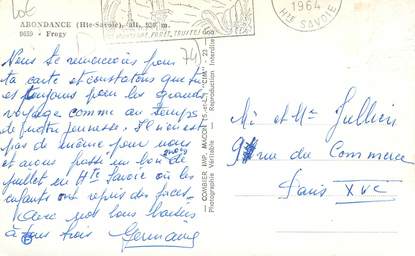 ABONDANCE (Hte-Savoie), alt. 930 m.
9659 - Frogy
1964
Hte SAVOIE
74
Nous te remercions pour
ta carte et constatons que tu
es toujours pour les grands
voyages comme au temps
de notre jeunesse. Il n'en est
pas de même pour nous
nous
et avons passé un bon
juillet en Hte Savoie où les
enfants ont repris des forces
Avec nos bons baisers
à tous trois Germaine
COMBIER IMP. MACON (S.-et-L.) "CIM"
Photographie Véritable - Reproduction Interdite
Mr et Mme Jullien
9 rue du Commerce
Paris XVe